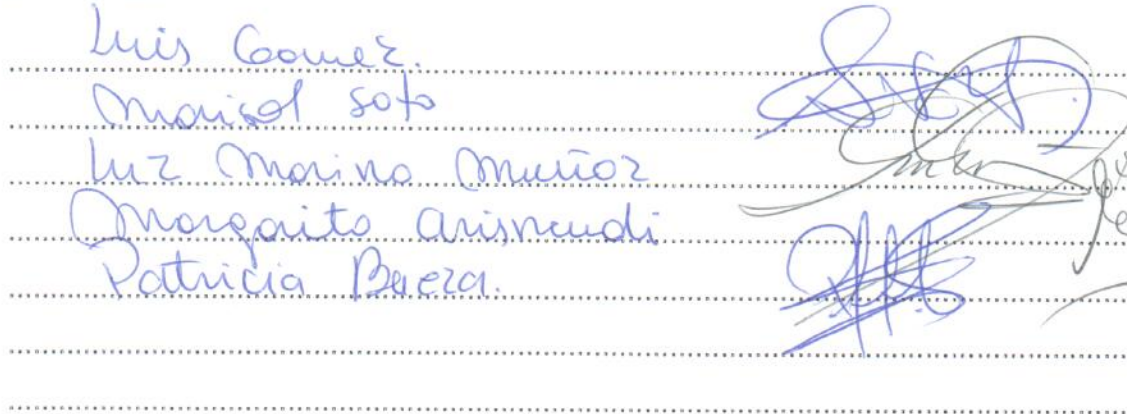 Luis Gomez.
Marisol Soto
Luz Marina Muñoz
Margarita Arismendi
Patricia Baeza.